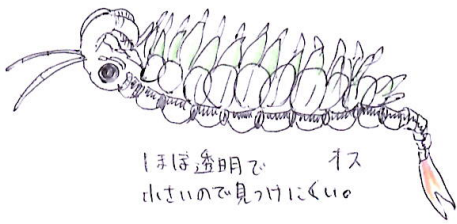 ほぼ透明で オス
小さいので見つけにくい。